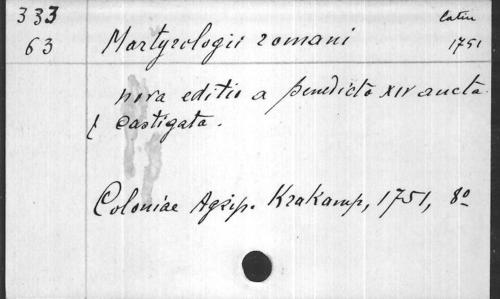 333
63
Martyrologii romani
latin
1751
nova editio a Benedicto XIV aucta
& castigata.
Coloniae Agrip. Krakamp, 1751, 8º